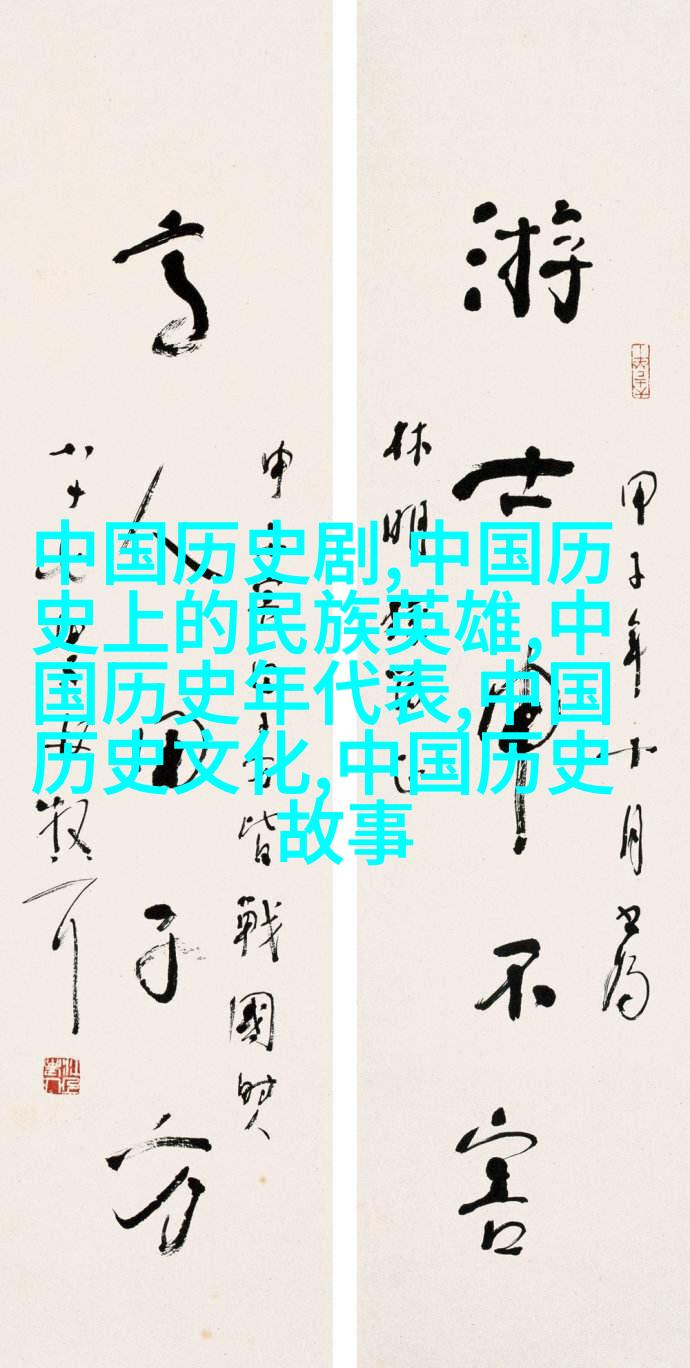 中国历史剧,中国历
史上的民族英雄,中
国历史年代表,中国
历史文化,中国历史
故事
甲子年十月書為
游士申不害
林明
高人田子方
皆戰國賢人